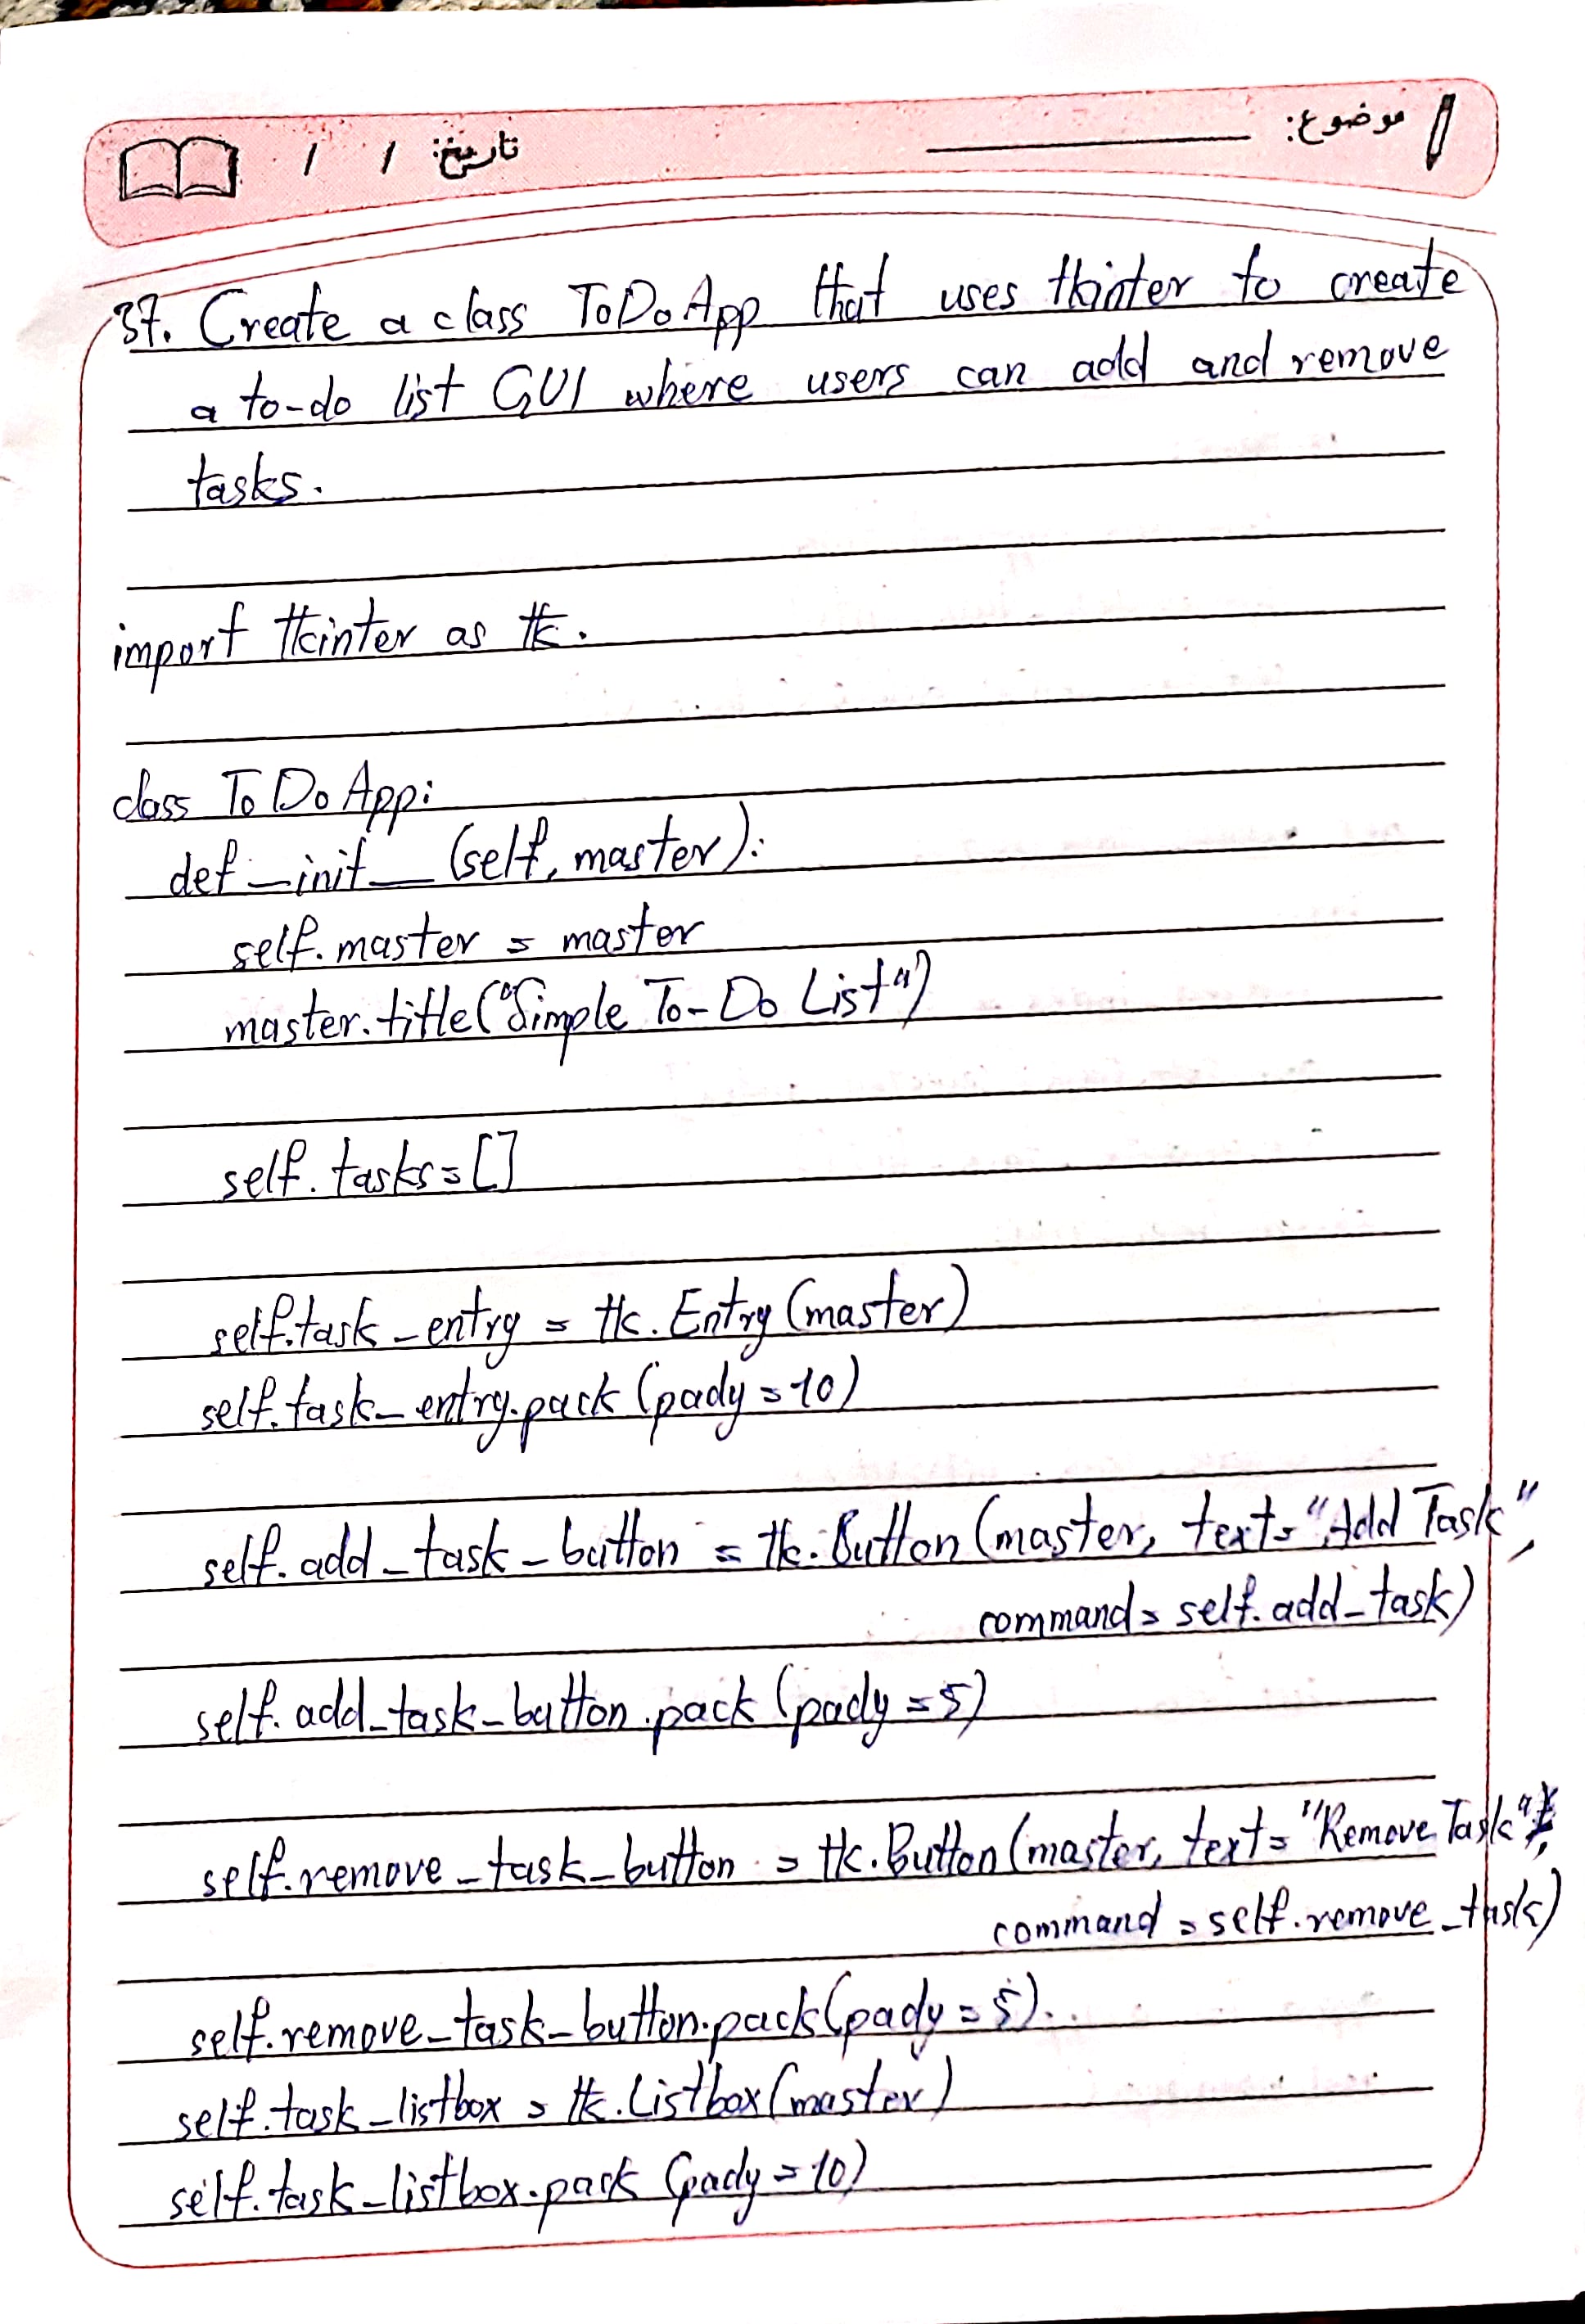 موضوع:
تاریخ: / /
37. Create a class ToDoApp that uses tkinter to create
a to-do list GUI where users can add and remove
tasks.
import tkinter as tk.
class ToDoApp:
def __init__ (self, master):
self.master = master
master.title("Simple To-Do List")
self.tasks = []
self.task_entry = tk.Entry(master)
self.task_entry.pack(pady=10)
self.add_task_button = tk.Button(master, text="Add Task",
command=self.add_task)
self.add_task_button.pack(pady=5)
self.remove_task_button = tk.Button(master, text="Remove Task",
command=self.remove_task)
self.remove_task_button.pack(pady=5).
self.task_listbox = tk.Listbox(master)
self.task_listbox.pack(pady=10)